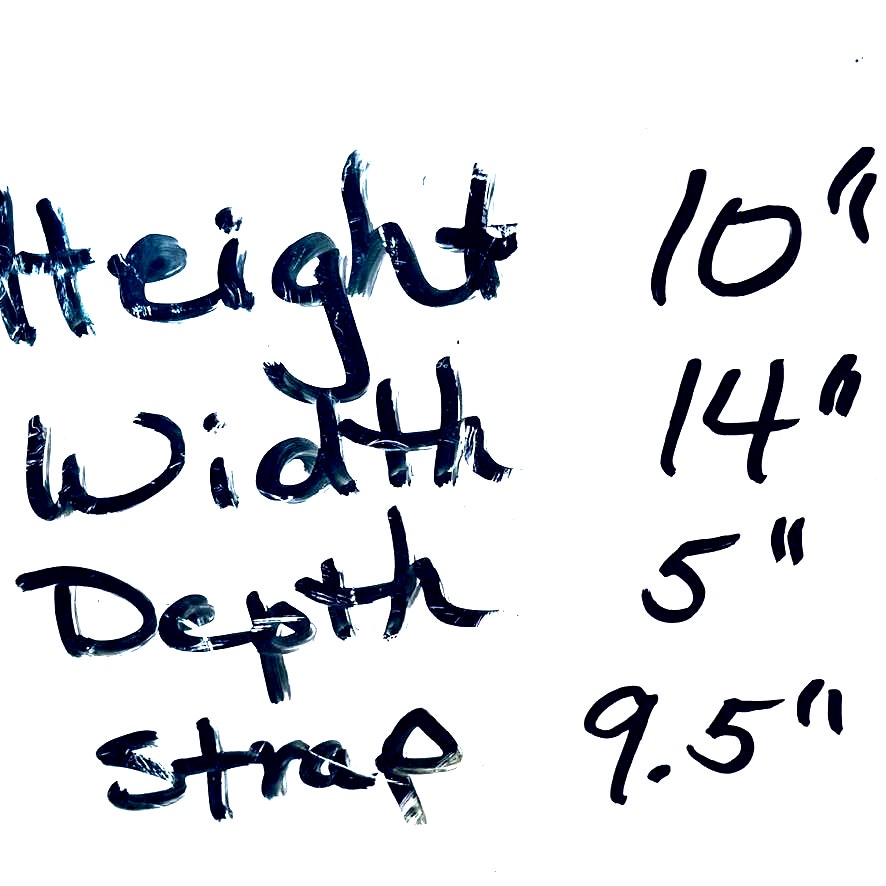 Height 10"
Width 14"
Depth 5"
Strap 9.5"